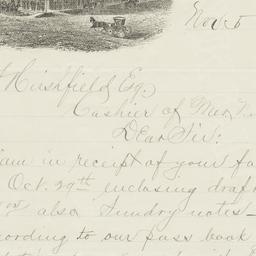 Nov 5
Hirshfield Esq.
Cashier of Mer
Dear Sir:
am in receipt of your fa
Oct. 29th inclosing draf
also Sundry notes —
cording to our pass book